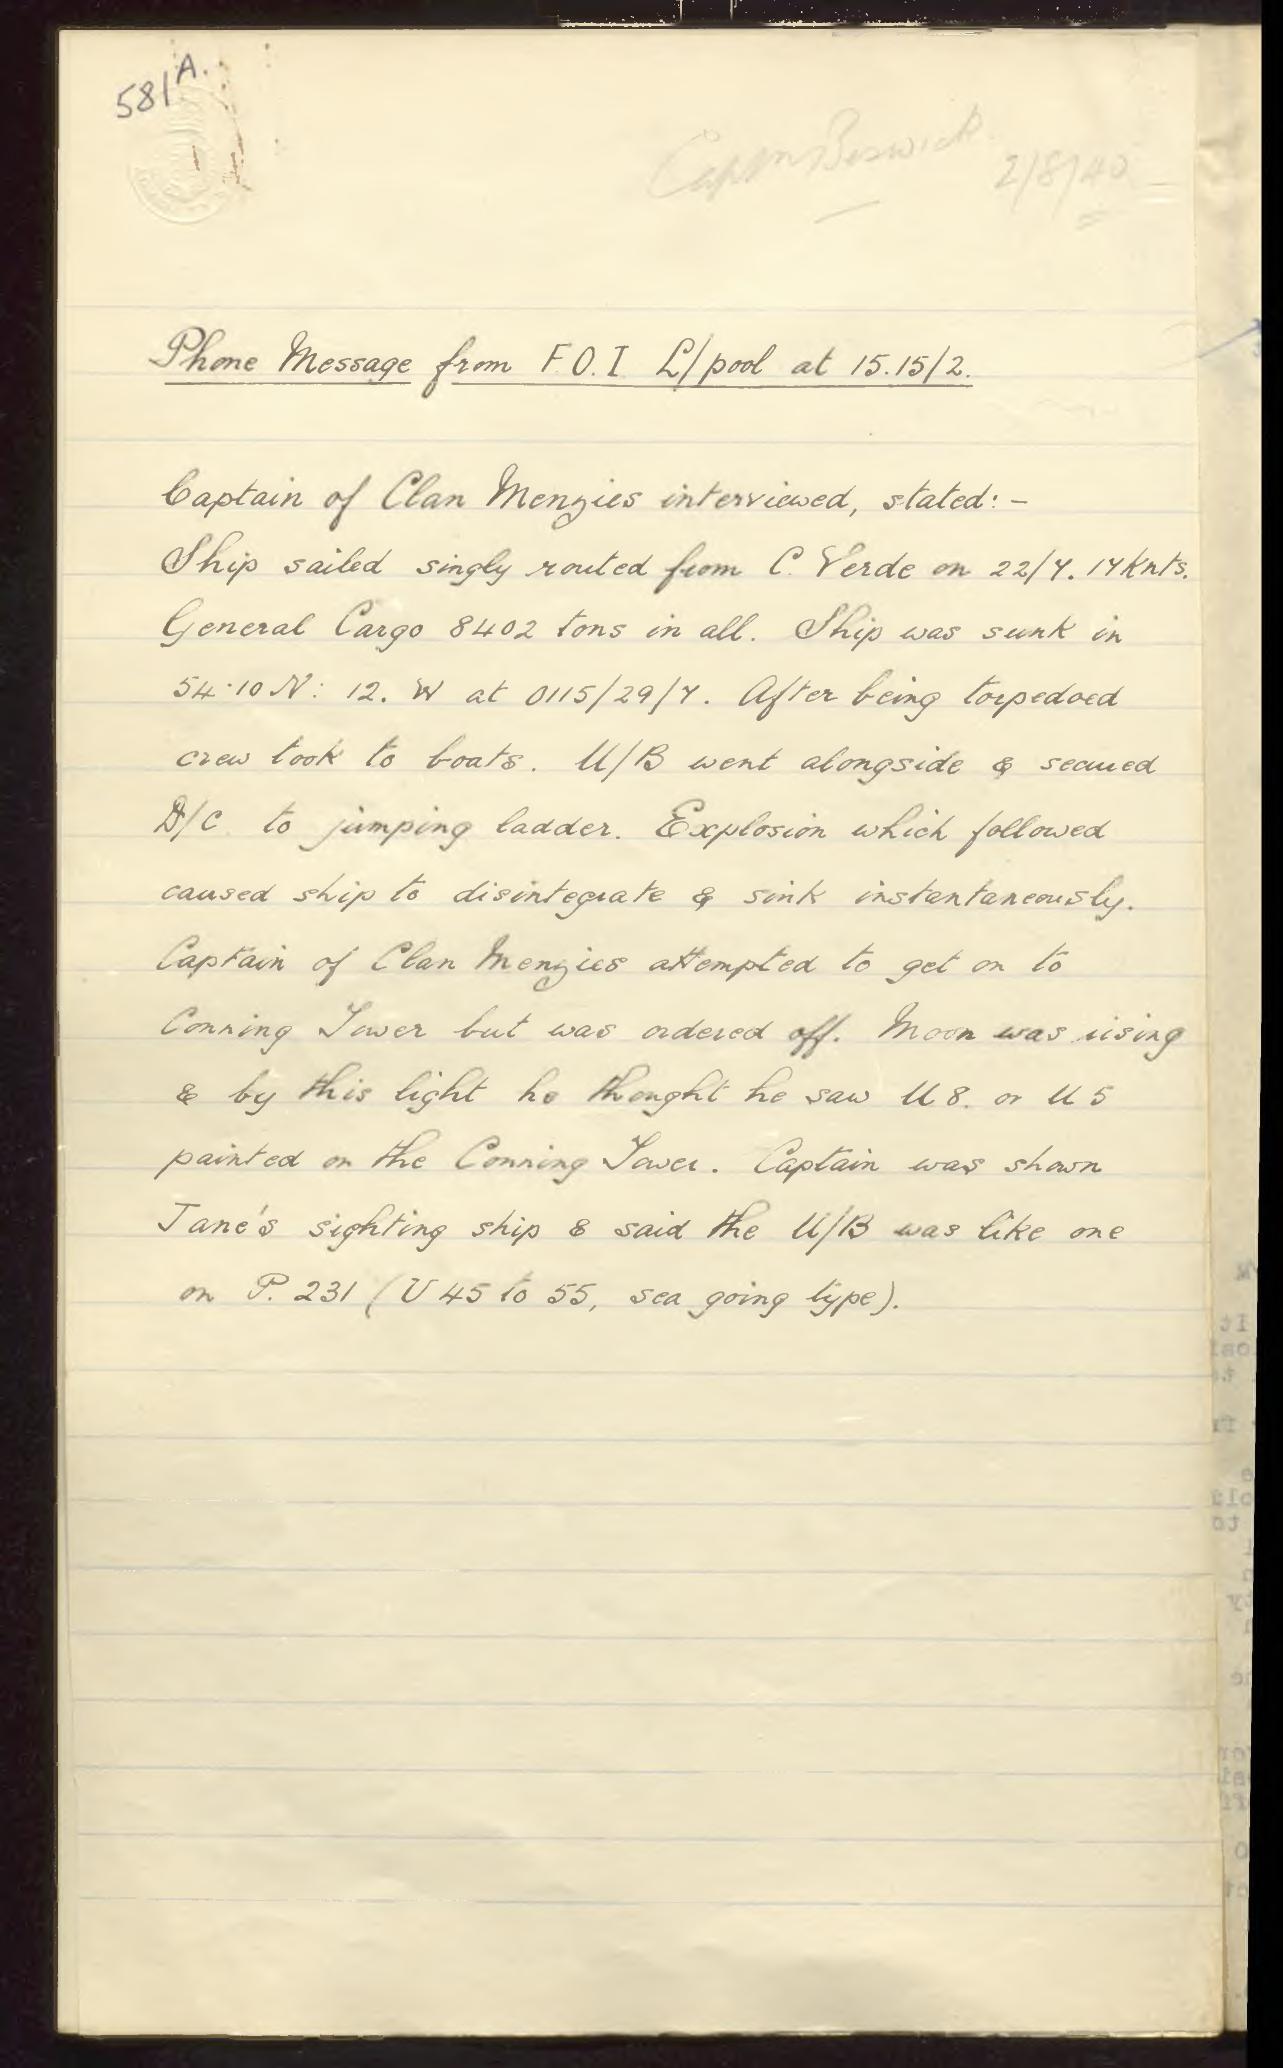 581A.
Captn Beswick
2/8/40
Phone Message from F.O.I L/pool at 15.15/2.
Captain of Clan Menzies interviewed, stated:-
Ship sailed singly routed from C. Verde on 22/7. 17 Knts.
General Cargo 8402 tons in all. Ship was sunk in
54·10 N: 12. W at 0115/29/7. After being torpedoed
crew took to boats. U/B went alongside & secured
D/C to jumping ladder. Explosion which followed
caused ship to disintegrate & sink instantaneously.
Captain of Clan Menzies attempted to get on to
Conning Tower but was ordered off. Moon was rising
& by this light he thought he saw U 8. or U 5
painted on the Conning Tower. Captain was shown
Jane's sighting ship & said the U/B was like one
on P. 231 (U 45 to 55, sea going type).